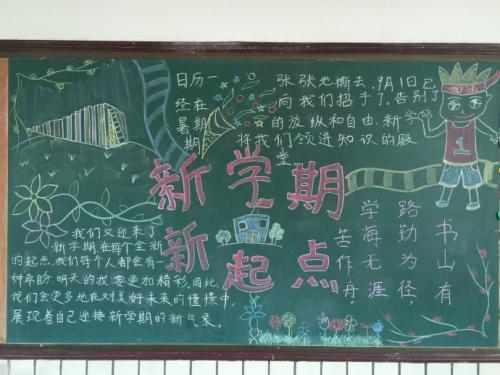 日历一 张张地撕去,9月1日已
经在 向我们招手了,告别了
暑期 的放纵和自由,新学
期 将我们领进知识的殿
堂
新学期
新起点
我们又迎来了
新学期,在每个全新
的起点,我们每个人都会有
一种希盼,明天的我要更加精彩,因此,
我们会更多地在对美好未来的憧憬中,
展现着自己迎接新学期的新气象。
书山有
路勤为径,
学海无涯
苦作舟
1